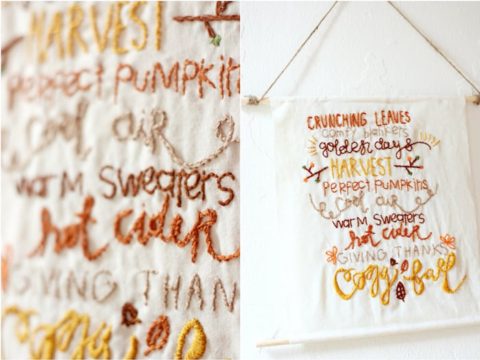 HARVEST
PERFECT PUMPKINS
cool air
WARM SWEATERS
hot cider
GIVING THAN
CRUNCHING LEAVES
comfy blankets
golden days
HARVEST
PERFECT PUMPKINS
cool air
WARM SWEATERS
hot cider
GIVING THANKS
fall